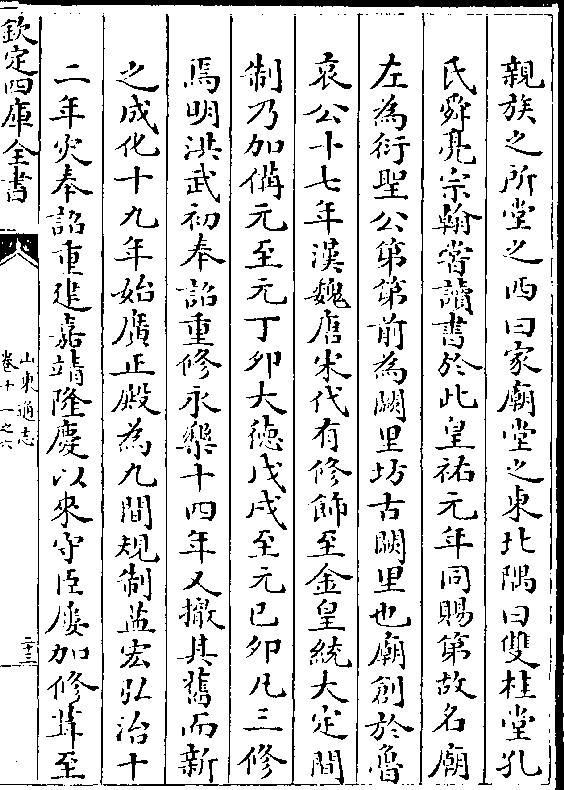 親族之所堂之西曰家廟堂之東北隅曰雙桂堂孔
氏舜亮宗翰嘗讀書於此皇祐元年同賜第故名廟
左為衍聖公第第前為闕里坊古闕里也廟創於魯
哀公十七年漢魏唐宋代有修飾至金皇統大定間
制乃加備元至元丁卯大德戊戌至元己卯凡三修
焉明洪武初奉詔重修永樂十四年又撤其舊而新
之成化十九年始廣正殿為九間規制益宏弘治十
二年灾奉詔重建嘉靖隆慶以來守臣屢加修葺至
欽定四庫全書
山東通志
卷十一之六
二十三